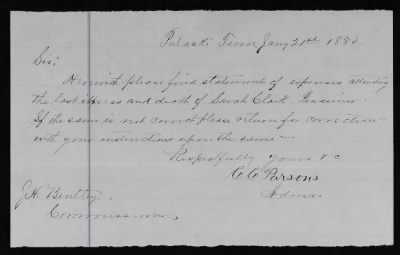 Pulaski Tenn Jany 21st 1880
Sir;
Herewith please find statement of expenses attending
the last illness and death of Sarah Clark Pensioner.
If the same is not correct please return for correction
with your instructions upon the same—
Respectfully yours &c
C C Parsons
Admr
J. H. Bentley,
Commissioner,